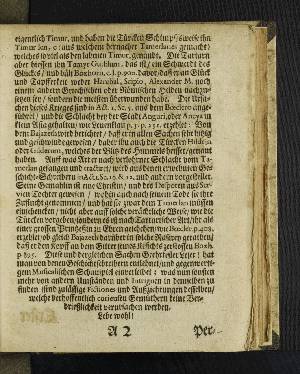 eigentlich Timur, und haben die Türcken Schimpfsweise ihn
Timur len, (auß welchem hernacher Tamerlanes gemacht)
welches so viel als den lahmen Timur, genannt. Die Tartarn
aber hiessen ihn Tamyr Guthlum, das ist, ein Schwerdt des
Glückes, und hält Boxhorn. c. l. p. 900. davor, daß er an Glück
und Tapfferkeit weder Hannibal, Scipio, Alexander M. noch
einem andern Grichischen oder Römischen Helden nachzu-
setzen sey, sondern die meisten überwunden habe. Der Ursa-
chen dieses Krieges sind in Act. 1. Sc. 5. aus dem Boeclero ange-
führet, und die Schlacht bey der Stadt Anguri, oder Ancyra in
klein Asia gehalten, wie p. 3. p. 251. erzehlet. Von
dem Bajazeth wird berichtet, daß er in allen Sachen sehr hitzig
und geschwind gewesen, daher ihn auch die Türcken Hildrin
oder Gulderum, welches der Blitz des Himmels heisset, genannt
haben. Auff was Art er nach verlohrner Schlacht vom Ta-
merlan gefangen und tractiret, wird aus denen erwehnten Ge-
schicht-Schreibern in Act. 2. Sc. 15. & 12. und andern vorgestellet.
Seine Gemahlin ist eine Christin, und des Despoten aus Ser-
vien Tochter gewesen, wohin auch nach seinem Tode sie ihre
Zuflucht genommen, und hat sie zwar dem Tamerlan müssen
einschencken, nicht aber auff solche verächtliche Weise, wie die
Türcken vorgeben, sondern es ist nach Tartarischer Art, sie als
einer grossen Printzeßin zu Ehren geschehen, wie Boecler p. 408.
erzehlet ob gleich Bajazeth darüber in solche Raserey gerathen,
daß er den Kopff an dem Gitter seines Kefichts zerstossen. Boxh.
p. 895. Diese und dergleichen Sachen Geehrtester Leser, hat
man von denen Geschichtschreibern entlehnet, und gegenwerti-
gem Musicalischen Schauspiel einverleibet; was nun sonsten
mehr von andern Umständen und Intriguen in demselben zu
finden sind zuläßige Fictiones und Außziehrungen desselben,
welche verhoffentlich curieusen Gemüthern keine Ver-
drießlichkeit verursachen werden.
Lebe wohl!
A 2
Per-